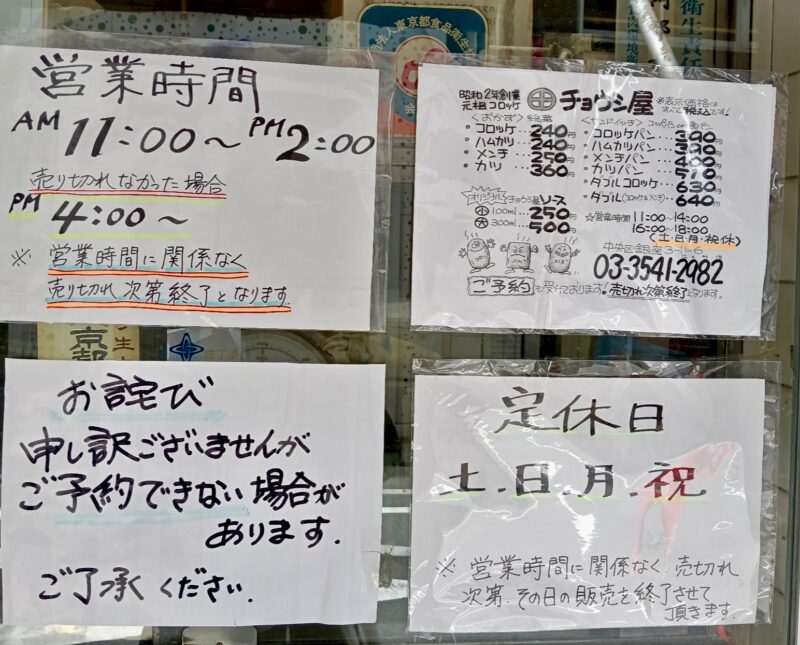 営業時間
AM 11:00～PM 2:00
売り切れなかった場合
PM 4:00～
※ 営業時間に関係なく
売り切れ次第終了となります
昭和2年創業
元祖コロッケ
チョウシ屋
※表示価格は
すべて税込です!
＜おかず＞
コロッケ‥240円
ハムカツ‥240円
メンチ‥250円
カツ‥360円
コロッケパン‥390円
ハムカツパン‥390円
メンチパン‥
カツパン‥510
ダブルコロッケ‥630
ダブル(コロッケ&メンチ)‥640
オリジナル チョウシ屋ソース
小 100ml 250円
大 300ml 500円
☆営業時間 11:00～14:00
16:00～18:00
(土・日・月・祝休)
中央区銀座
03-3541-2982
ご予約も受けております! 売切れ次第終了となります。
お詫び
申し訳ございませんが
ご予約できない場合が
あります.
ご了承ください.
定休日
土.日.月.祝
※ 営業時間に関係なく 売切れ
次第 その日の販売を終了させて
頂きます.